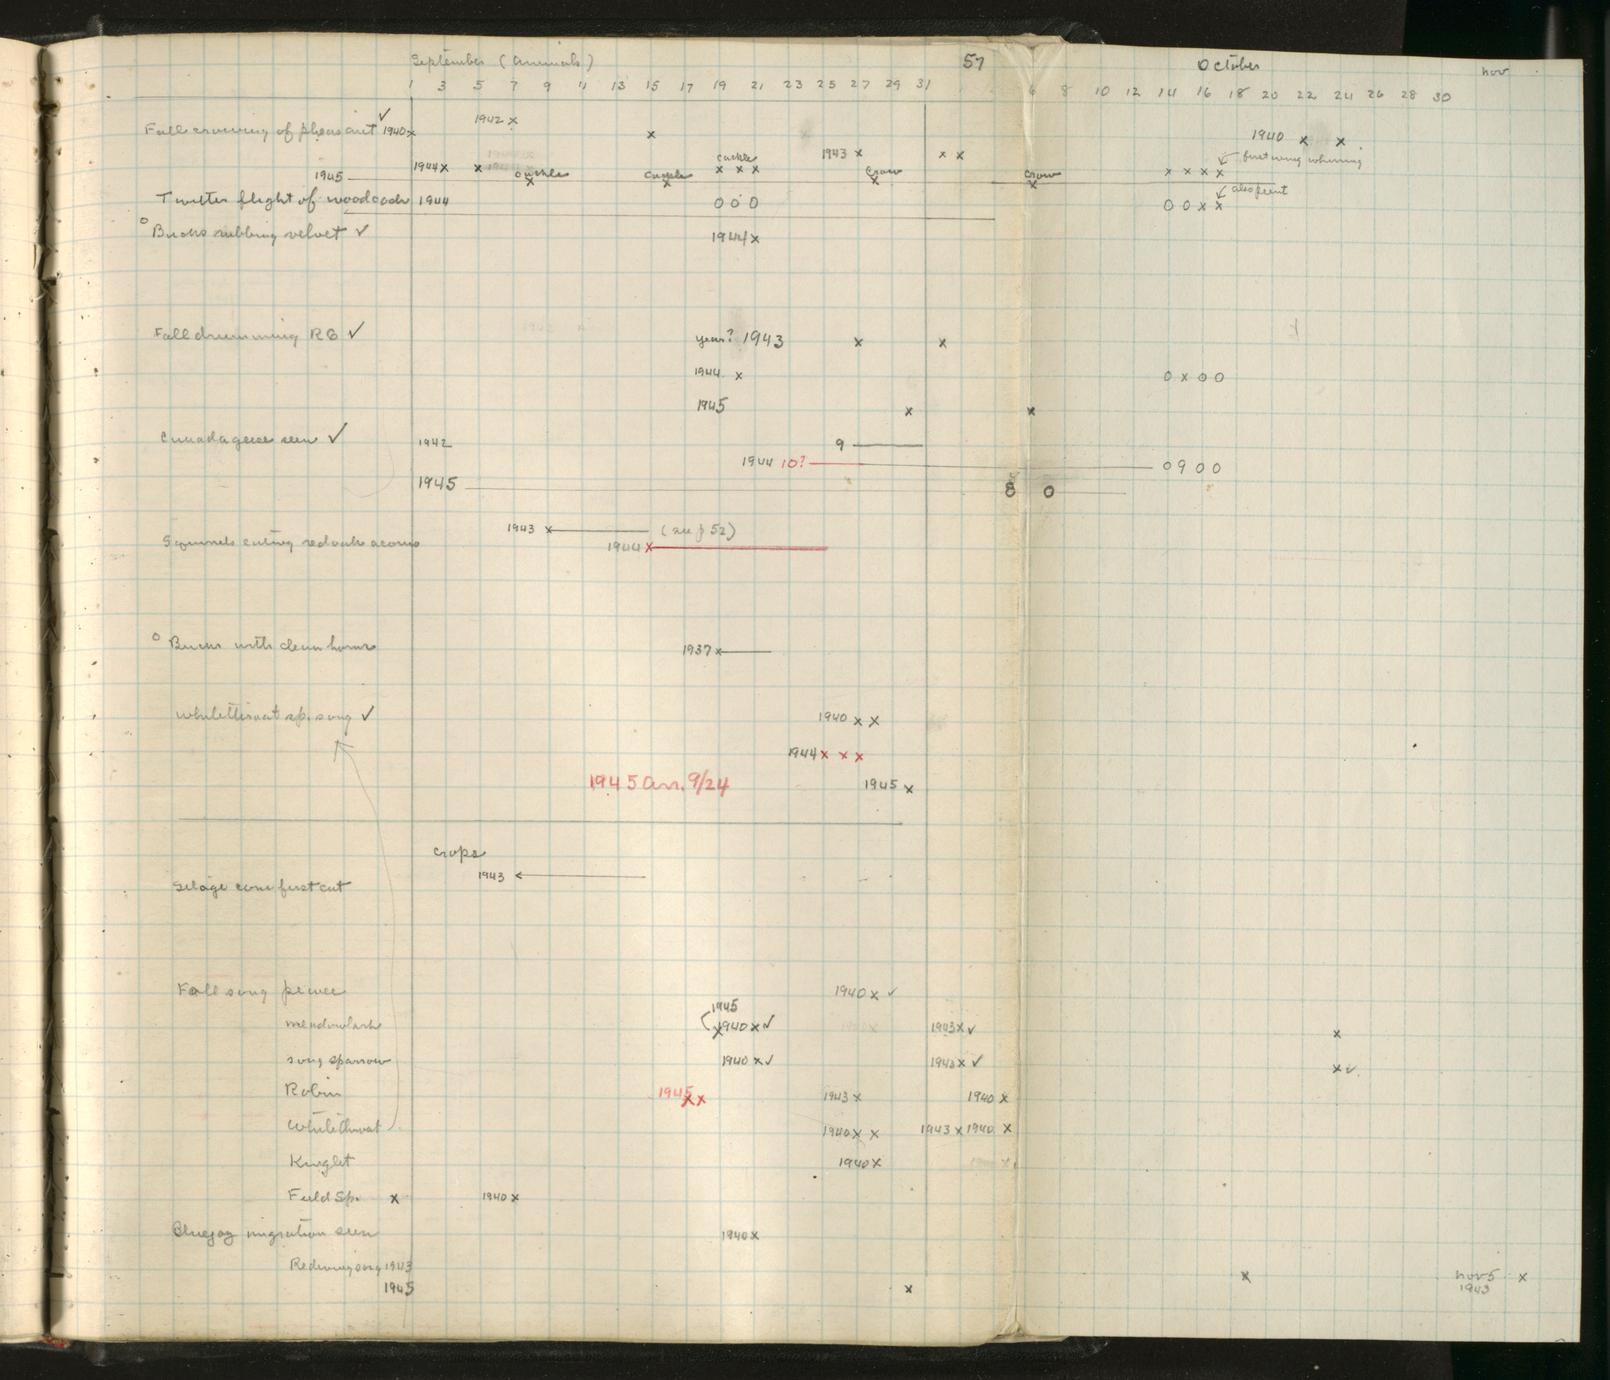 September (Animals) 57 October Nov
1 3 5 7 9 11 13 15 17 19 21 23 25 27 29 31 1 6 8 10 12 14 16 18 20 22 24 26 28 30
1942 x
Fall crowing of pheasant ✓ 1940 x x 1940 x x
1943 x x x
cackle first wing whirring
1944 x x x x x x x x x
1945 cackle x cackle x crow x crow x
also peent
Twitter flight of woodcock 1944 0 0 0 0 0 x x
° Bucks rubbing velvet ✓ 1944 x
Fall drumming RG ✓ year? 1943 x x
1944 x 0 x 0 0
1945 x x
Canada geese seen ✓ 1942 9
1944 10? 0 9 0 0
1945 8 0
1943 x (see p 52)
Squirrels eating red oak acorns 1944 x
° Bucks with clean horns 1937 x
Whitethroat sp. song ✓ 1940 x x
1944 x x x
1945 Arr. 9/24 1945 x
Crops
1943
Silage corn first cut
Fall song pewee 1940 x ✓
1945
meadowlark x 1940 x ✓ 1943 x ✓ x
song sparrow 1940 x ✓ 1943 x ✓ x ✓
Robin 1945 x x 1943 x 1940 x
Whitethroat 1940 x x 1943 x 1940 x
Kinglet 1940 x
Field Sp. x 1940 x
Bluejay migration seen 1940 x
Redwing song 1943 x Nov 5 x
1943
1945 x